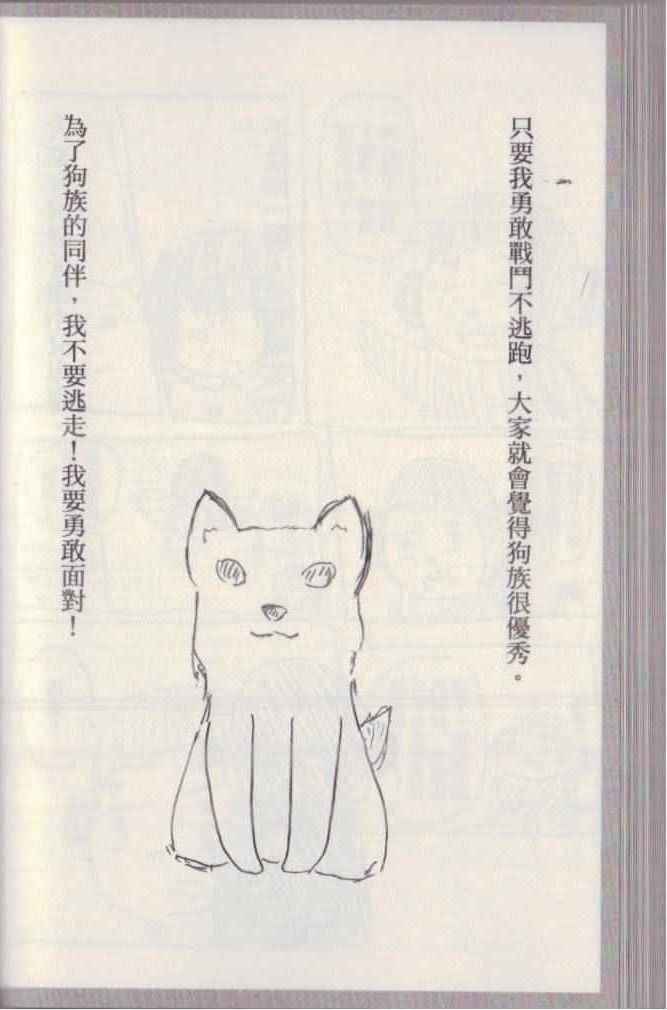 只要我勇敢戰鬥不逃跑，大家就會覺得狗族很優秀。
為了狗族的同伴，我不要逃走！我要勇敢面對！